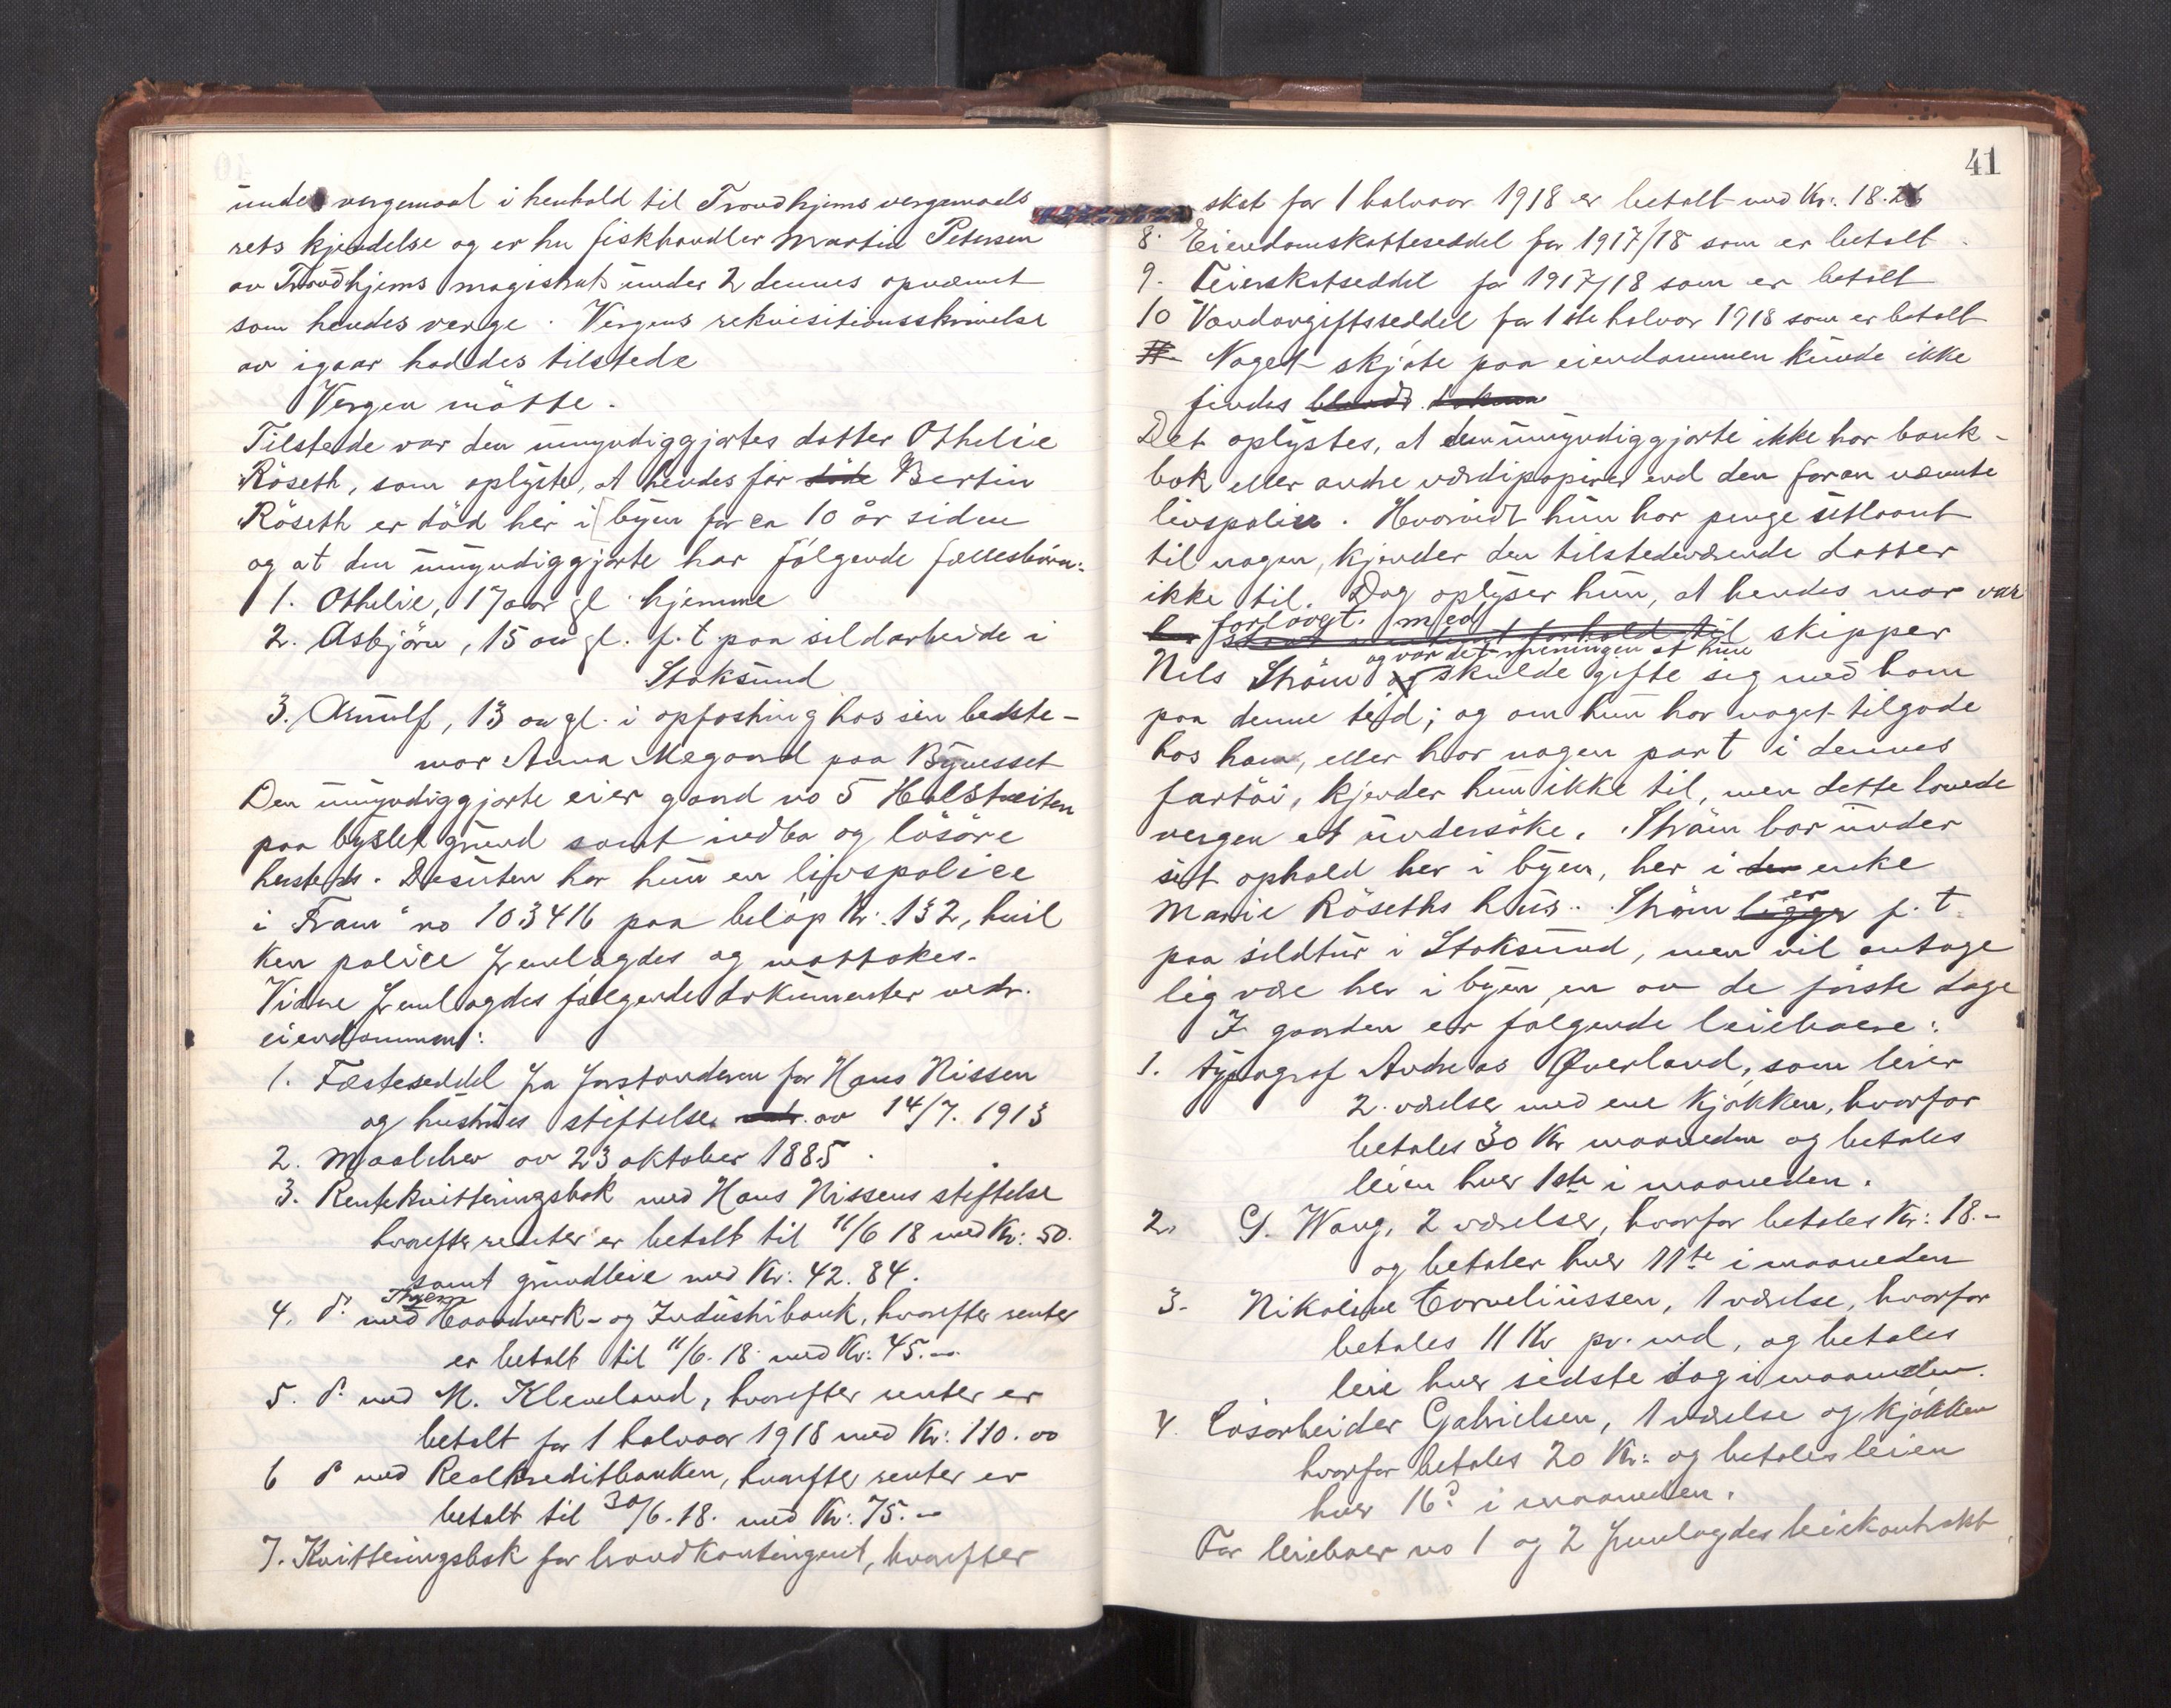 under vergemaal i henhold til Trondhjems vergemaals
rets kjendelse og er hr fiskhandler Martin Petersen
av Trondhjems magistrat under 2 dennes opnævnt
som hendes verge. Vergens rekvisitionsskrivelse
av igaar haddes tilstede
Vergen mötte.
Tilstede var den umyndiggjortes datter Othelie
Röseth, som oplyste, at hendes far döde Bertin
Röseth er död her i byen for ca 10 år siden
og at den umyndiggjorte har fölgende fællesbörn:
1. Othelie, 17 aar gl hjemme
2. Asbjörn, 15 aar gl. p.t paa sildarbeide i
Stoksund
3. Arnulf, 13 aar gl. i opfostring hos sin bedste-
mor Anna Megaard paa Bynesset
Den umyndiggjorte eier gaard no 5 Holstveiten
paa byslet grund samt indbo og lösöre
hersteds. Desuten har hun en livspolice
i "Fram" no 103416 paa belöp Kr: 132, hvil
ken police fremlagdes og mottokes.
Videre fremlagdes fölgende dokumenter vedr.
eiendommen:
1. Fæsteseddel fra forstanderen for Hans Nissen
og hustrues stiftelse vedr. av 14/7. 1913
2. Maalebrev av 23 oktober 1885.
3. Rentekvitteringsbok med Hans Nissens stiftelse
hvorefter renter er betalt til 11/6 18 med Kr: 50.
samt grundleie med Kr: 42.84.
4. do med Thjems Haandverk- og Industribank, hvorefter renter
er betalt til 11/6. 18. med Kr: 45.-
5. do med M. Kleveland, hvorefter renter er
betalt for 1 halvaar 1918 med Kr: 110.00
6 do med Realkreditbanken, hvorefter renter er
betalt til 30/6.18. med Kr: 75.-
7. Kvitteringsbok for brandkontingent, hvorefter
41
skat for 1 halvaar 1918 er betalt med Kr: 18.26
8. Eiendomskatteseddel for 1917/18 som er betalt.
9. Feierskatseddel for 1917/18 som er betalt
10 Vandavgiftsseddel for 1ste halvar 1918 som er betalt
11 Noget skjöte paa eiendommen kunde ikke
findes blandt
Det oplystes, at den umyndiggjorte ikke har bank-
bok eller andre værdipapirer end den foran nævnte
livspolice. Hvorvidt hun har penge utlaant
til nogen, kjender den tilstedeværende datter
ikke til. Dog oplyser hun, at hendes mor var
forlovet med forhold til skipper
og var det meningen at hun
Nils Ström og skulde gifte sig med ham
paa denne tid; og om hun har noget tilgode
hos ham, eller har nogen part i dennes
fartöi, kjender hun ikke til, men dette lovede
vergen at undersöke. Ström bor under
sit ophold her i byen, her i den enke
Marie Röseths hus. Ström ligger er p.t.
paa sildtur i Stoksund, men vil antage
lig være her i byen en av de förste dage
I gaarden er fölgende leieboere:
1. typograf Andreas Øverland, som leier
2 værelser med ene kjökken, hvorfor
betales 30 Kr maaneden og betales
leien hver 1ste i maaneden.
2. G. Wang, 2 værelser, hvorfor betales Kr: 18.-
og betaler hver 11te i maaneden
3. Nikoline Corneliussen, 1 værelse, hvorfor
betales 11 Kr pr. md, og betales
leie hver sidste dag i maaneden.
4. Lösarbeider Gabrielsen, 1 værelse og kjökken
hvorfor betales 20 Kr: og betales leien
hver 16d i maaneden.
For leieboer no 1 og 2 fremlagdes leiekontrakt